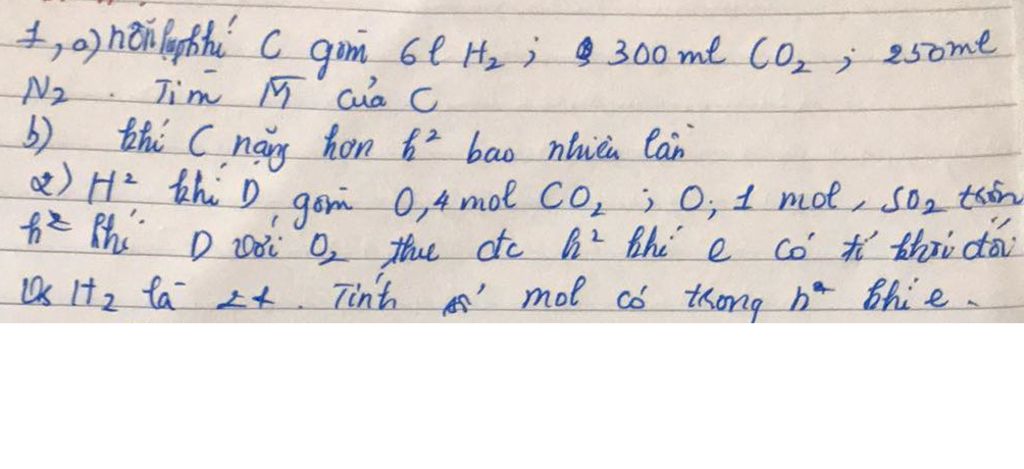 1, a) hỗn hợp khí C gồm 6l H2 ; 300 ml CO2 ; 250ml
N2 . Tìm M̅ của C
b) khí C nặng hơn h² bao nhiêu lần
2) H² khí D gồm 0,4 mol CO2 ; 0,1 mol, SO2 trộn
h² khí D với O2 thu đc h² khí e có tỉ khối đối
H2 là . Tính số mol có trong h² khí e.